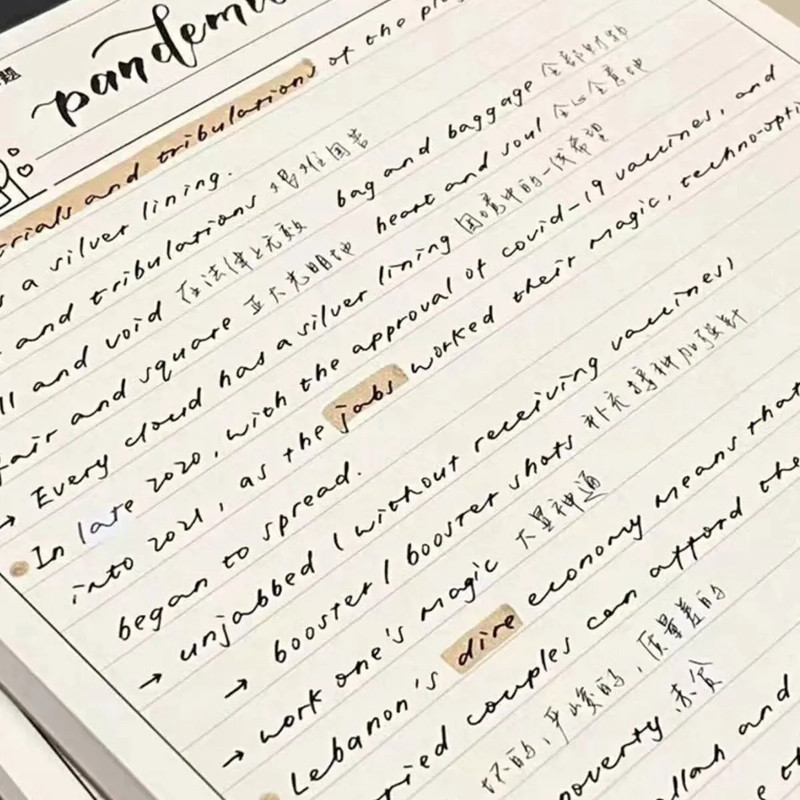 题
pandemi
trials and tribulations of the
a silver lining.
and tribulations 艰难困苦 bag and baggage 全部财物
and void 在法律上无效 heart and soul 全心全意地
fair and square 正大光明地
→ Every cloud has a silver lining 困境中的一线希望
In late 2020, with the approval of covid-19 vaccines, and
into 2021, as the jabs worked their magic, techno-opti
began to spread.
→ unjabbed (without receiving vaccines)
→ booster / booster shots 补充接种加强针
→ work one's magic 大显神通
Lebanon's dire economy means that
ried couples can afford the
坏的,严峻的,质量差的
poverty 赤贫
llah and